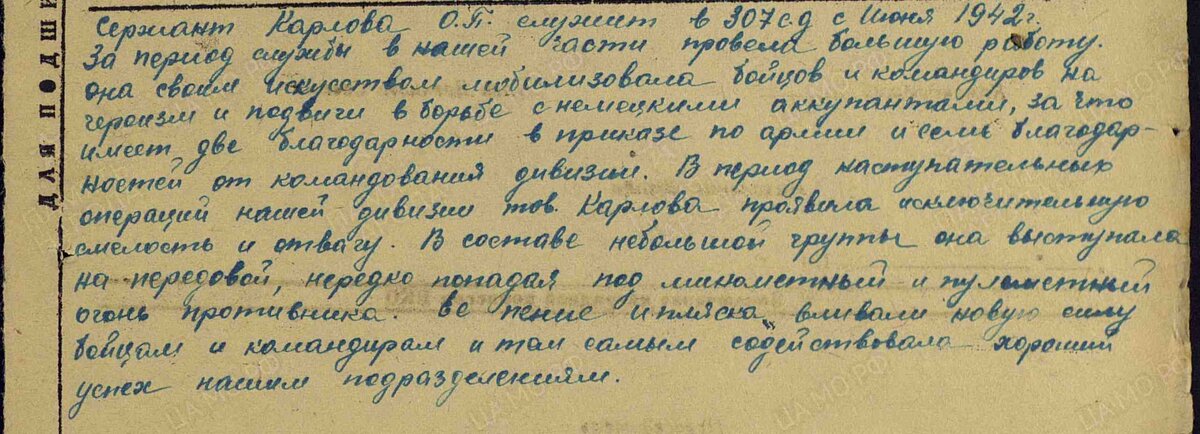 Сержант Карлова О.П. служит в 307 с.д с Июня 1942г.
За период службы в нашей части провела большую работу.
она своим искусством мобилизовала бойцов и командиров на
героизм и подвиги в борьбе с немецкими аккупантами, за что
имеет две благодарности в приказе по армии и семь благодар-
ностей от командования дивизии. В период наступательных
операций нашей дивизии тов. Карлова проявила исключительную
смелость и отвагу. В составе небольшой группы она выступала
на передовой, нередко попадая под минометный и пулеметный
огонь противника. Ее пение и пляска вливали новую силу
бойцам и командирам и тем самым содействовала хороший
успех нашим подразделениям.
ДЛЯ ПОДШИ
ЦАМО РФ